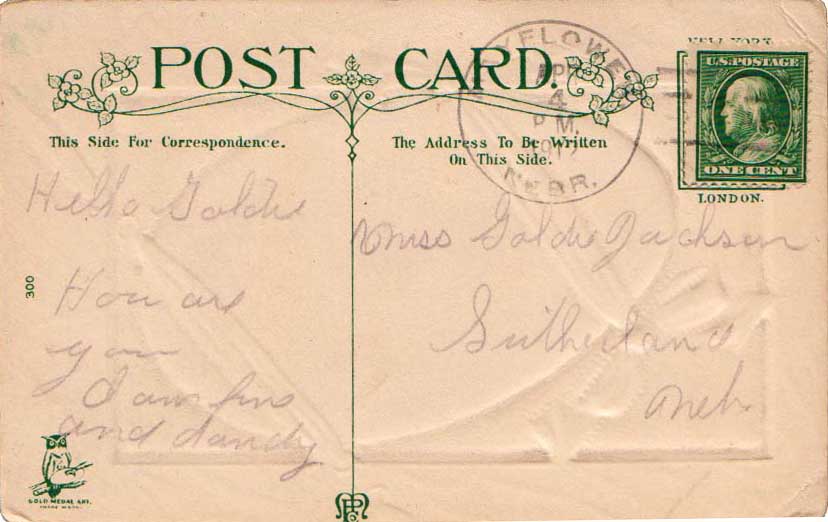 POST CARD.
This Side For Correspondence.
The Address To Be Written
On This Side.
NEW YORK
LONDON.
U.S. POSTAGE
ONE CENT
APR
4
P M.
NEBR.
Hello Goldie
How are
you
I am fine
and dandy
Miss Goldie Jackson
Sutherland
Neb.
300
GOLD MEDAL ART.
TRADE MARK.